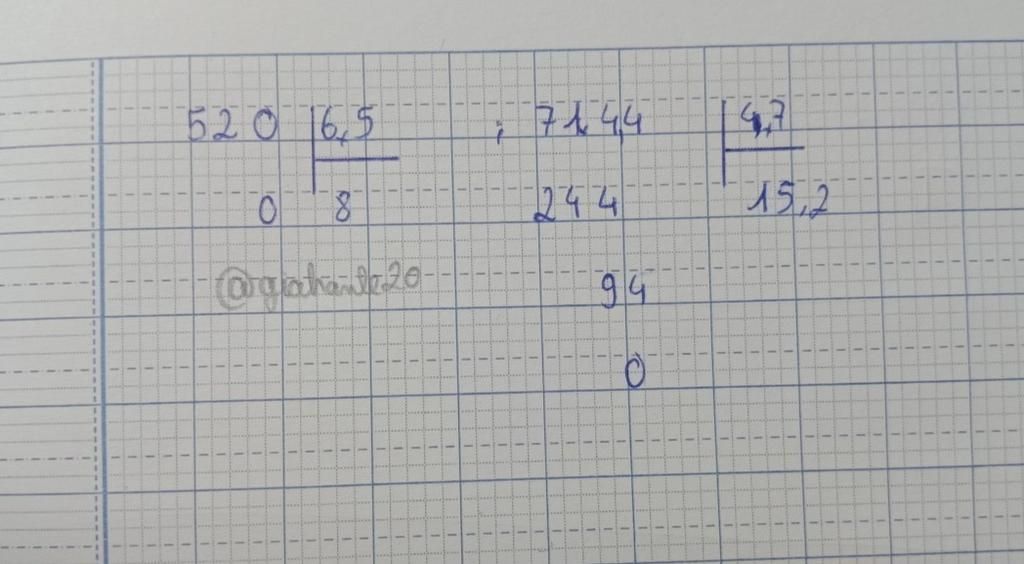 520 6,5 ; 71,4,4 4,7
0 8 244 15,2
@giahanle20 94
0